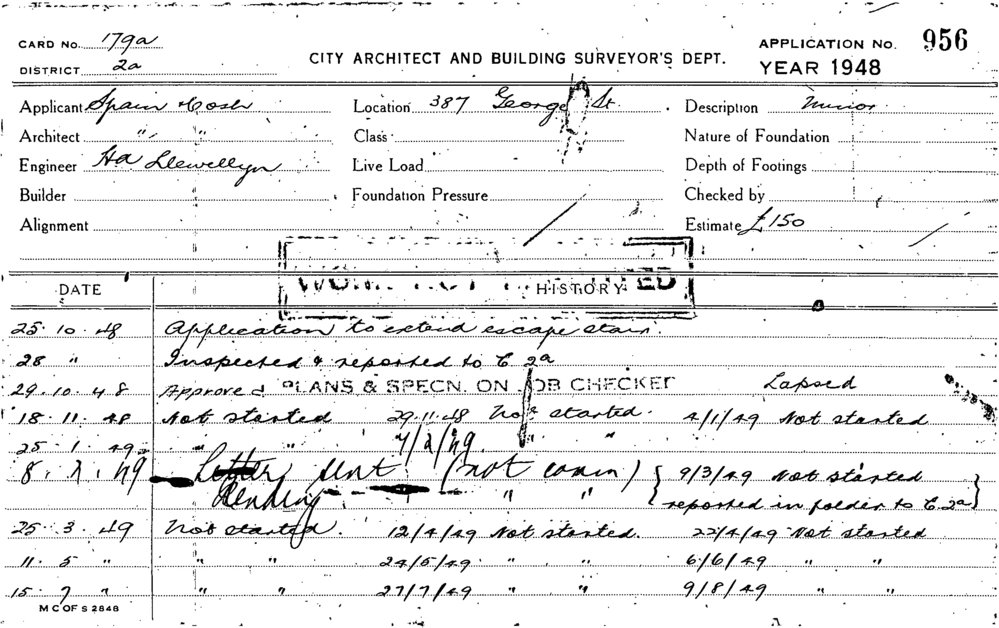 CARD NO. 179a
DISTRICT 2a
CITY ARCHITECT AND BUILDING SURVEYOR'S DEPT.
APPLICATION NO. 956
YEAR 1948
Applicant Spain & Cosh
Location 387 George St.
Description Minor
Architect " "
Class
Nature of Foundation
Engineer Ha Llewellyn
Live Load
Depth of Footings
Builder
Foundation Pressure
Checked by
Alignment
Estimate £150
DATE HISTORY
25.10.48 Application to extend escape stair.
28 " Inspected & reported to C 2a
29.10.48 Approved PLANS & SPECN. ON JOB CHECKED Lapsed
18.11.48 Not started 29.11.48 Not started. 4/1/49 Not started
25.1.49 " " 7/2/49 " "
8.2.49 Letter sent (not comm) { 9/3/49 Not started
Pending " " reported in folder to C.2a }
25.3.49 Not started. 12/4/49 Not started. 22/4/49 Not started
11.5 " " " 24/5/49 " " 6/6/49 " "
15.7 " " " 27/7/49 " " 9/8/49 " "
M C OF S 2848